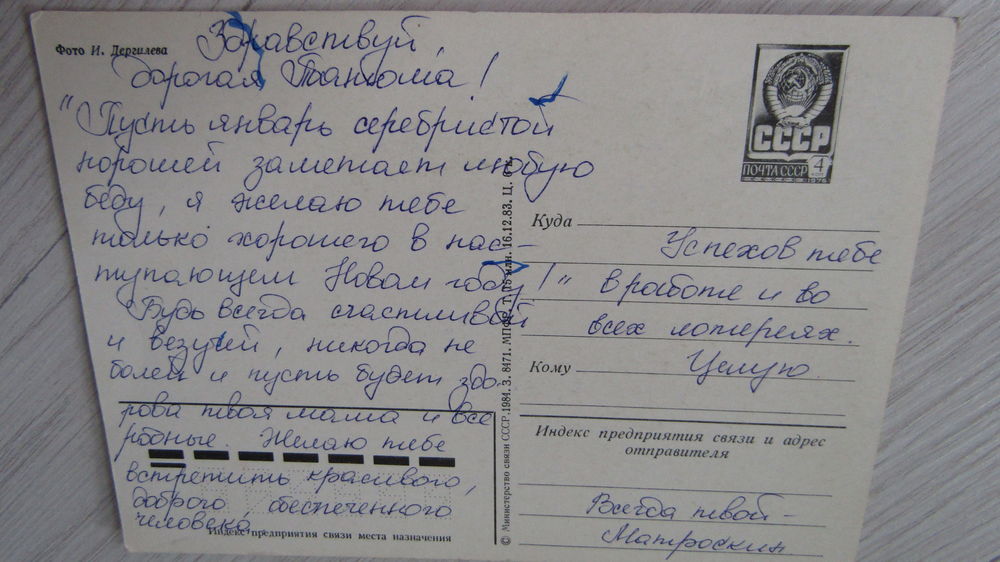 Фото И. Дергилева
Здравствуй,
дорогая Тантома!
"Пусть январь серебристой
порошей заметает любую
беду, я желаю тебе
только хорошего в нас-
тупающем Новом году!"
Будь всегда счастливой
и везучей, никогда не
болей и пусть будет здо-
рова твоя мама и все
родные. Желаю тебе
встретить красивого,
доброго, обеспеченного
человека.
Индекс предприятия связи места назначения
© Министерство связи СССР. 1984. З. 8471. МПФГ. 16.12.83. Ц.
СССР
ПОЧТА СССР 4
1976
Куда
Успехов тебе
в работе и во
всех лотереях.
Кому
Целую
Индекс предприятия связи и адрес
отправителя
Всегда твой -
Матроскин